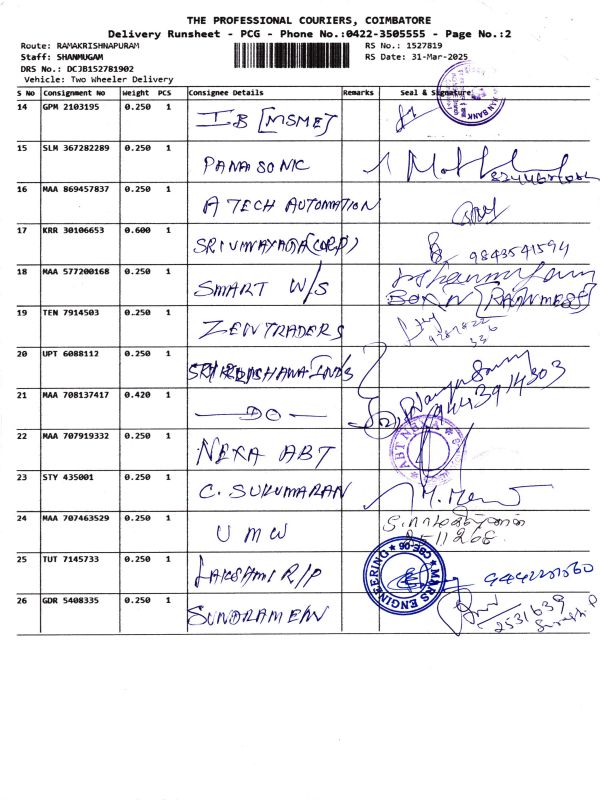 THE PROFESSIONAL COURIERS, COIMBATORE
Delivery Runsheet - PCG - Phone No.:0422-3505555 - Page No.:2
Route: RAMAKRISHNAPURAM RS No.: 1527819
Staff: SHANMUGAM RS Date: 31-Mar-2025
DRS No.: DCJB152781902
Vehicle: Two Wheeler Delivery
S No Consignment No Weight PCS Consignee Details Remarks Seal & Signature
14 GPM 2103195 0.250 1 IB [MSME]
15 SLM 367282289 0.250 1 PANASONIC
16 MAA 869457837 0.250 1 A TECH AUTOMATION
17 KRR 30106653 0.600 1 SRIVINAYAGA (CORP) 9843541594
18 MAA 577200168 0.250 1 SMART W/S
19 TEN 7914503 0.250 1 ZEN TRADERS
20 UPT 6088112 0.250 1
21 MAA 708137417 0.420 1 —DO— 9443914303
22 MAA 707919332 0.250 1 NEXA ABT
23 STY 435001 0.250 1 C. SUKUMARAN
24 MAA 707463529 0.250 1 UMW
25 TUT 7145733 0.250 1 LAKSHMI R/P MARS ENGINEERING CBE-06
26 GDR 5408335 0.250 1 2531639